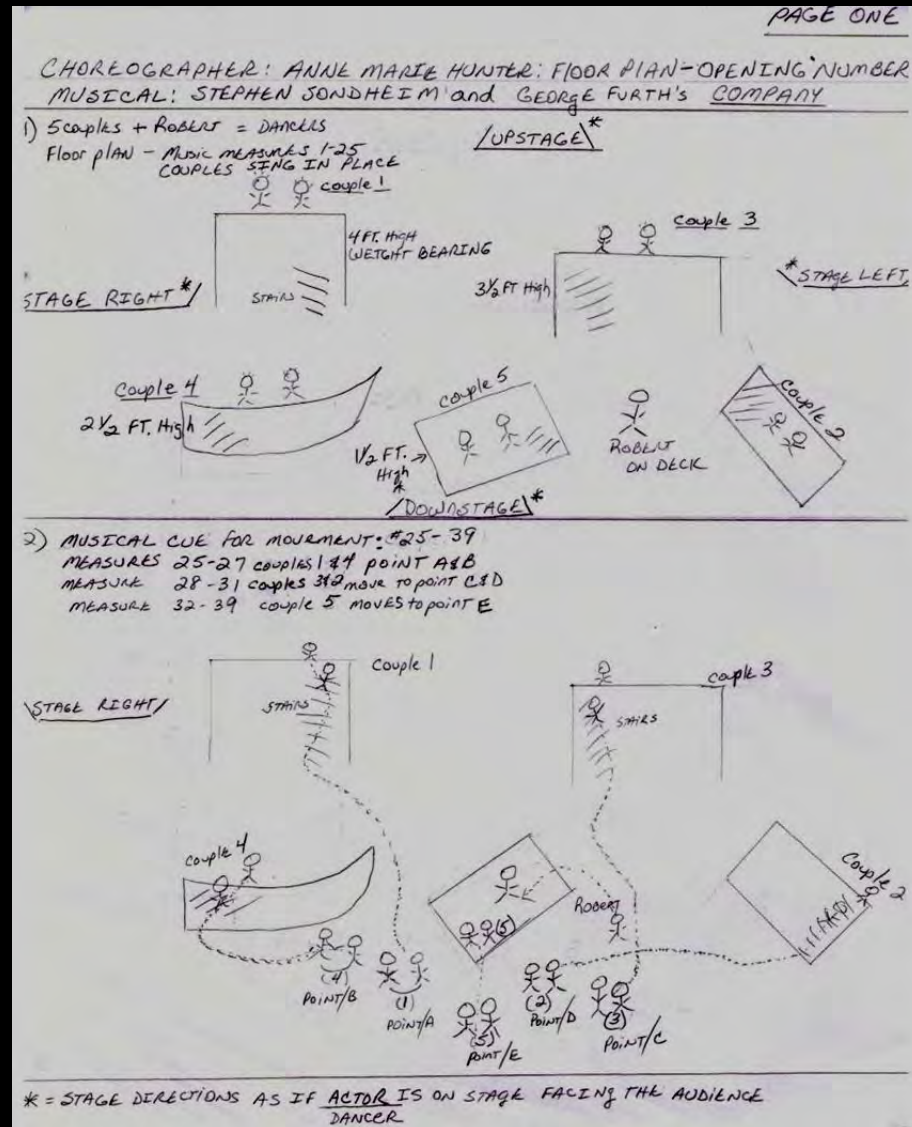 PAGE ONE
CHOREOGRAPHER: ANNE MARIE HUNTER: FLOOR PLAN-OPENING NUMBER
MUSICAL: STEPHEN SONDHEIM and GEORGE FURTH's COMPANY
1) 5 couples + ROBERT = DANCERS
Floor plAN - MUSIC MEASURES 1-25
COUPLES SING IN PLACE
/UPSTAGE\*
couple 1
4 FT. HIGH
WEIGHT BEARING
STAIRS
STAGE RIGHT*/
couple 3
3½ FT High
*\STAGE LEFT
couple 4
2½ FT. High
couple 5
1½ FT. →
High
*
ROBERT
ON DECK
couple 2
/DOWNSTAGE\*
2) MUSICAL CUE FOR MOVEMENT: #25-39
MEASURES 25-27 couples 1&4 POINT A&B
MEASURE 28-31 couples 3&2 move to point C&D
MEASURE 32-39 couple 5 MOVES to point E
couple 1
STAIRS
\STAGE RIGHT/
couple 3
STAIRS
couple 4
couple 2
Robert
(5)
(4)
POINT/B
(1)
POINT/A
(5)
POINT/E
(2)
POINT/D
(3)
POINT/C
* = STAGE DIRECTIONS AS IF ACTOR IS ON STAGE FACING THE AUDIENCE
DANCER